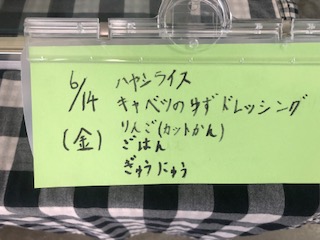 6/14
(金)
ハヤシライス
キャベツのゆずドレッシング
りんご(カットかん)
ごはん
ぎゅうにゅう